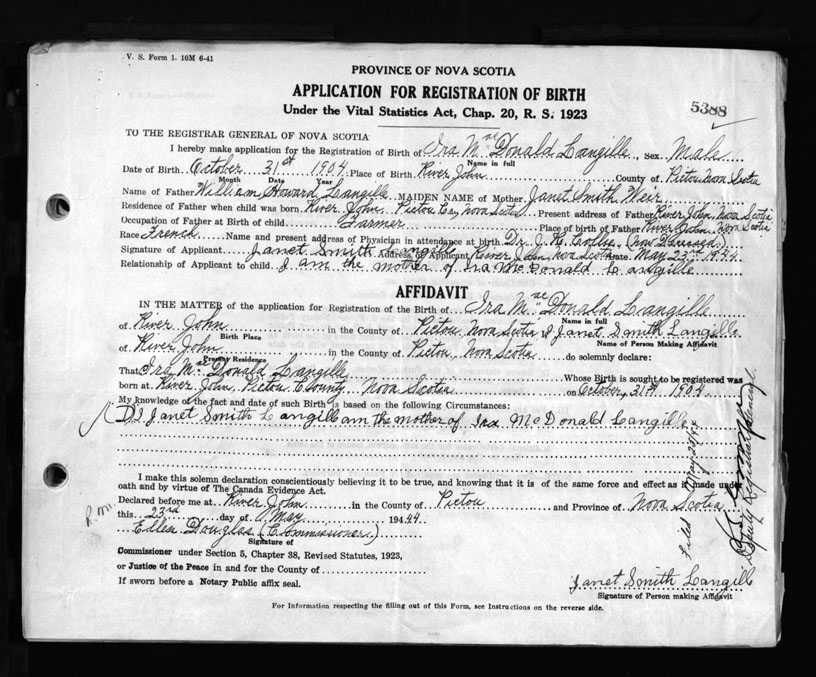 V. S. Form 1. 10M 6-41
PROVINCE OF NOVA SCOTIA
APPLICATION FOR REGISTRATION OF BIRTH
5388
Under the Vital Statistics Act, Chap. 20, R. S. 1923
TO THE REGISTRAR GENERAL OF NOVA SCOTIA
I hereby make application for the Registration of Birth of Ira Mac Donald Langille, Sex Male
Name in full
Date of Birth October 31st 1904 Place of Birth River John County of Pictou Nova Scotia
Month Date Year
Name of Father William Howard Langille MAIDEN NAME of Mother Janet Smith Weir
Residence of Father when child was born River John, Pictou Co, Nova Scotia Present address of Father River John, Nova Scotia
Occupation of Father at Birth of child Farmer Place of birth of Father River John, Nova Scotia
Race French Name and present address of Physician in attendance at birth Dr. J. K. (now Deceased)
Signature of Applicant Janet Smith Langille Address of Applicant River John Nova Scotia Date May 23rd 1944
Relationship of Applicant to child I am the mother of Ira McDonald Langille
AFFIDAVIT
IN THE MATTER of the application for Registration of the Birth of Ira Mac Donald Langille
Name in full
of River John in the County of Pictou Nova Scotia I Janet Smith Langille
Birth Place Name of Person Making Affidavit
of River John in the County of Pictou, Nova Scotia do solemnly declare:
Present Residence
That Ira Mac Donald Langille Whose Birth is sought to be registered was
born at River John, Pictou County Nova Scotia on October, 31st, 1904
My knowledge of the fact and date of such Birth is based on the following Circumstances:
I Janet Smith Langille am the mother of Ira McDonald Langille
I make this solemn declaration conscientiously believing it to be true, and knowing that it is of the same force and effect as if made under
oath and by virtue of The Canada Evidence Act.
Declared before me at River John in the County of Pictou and Province of Nova Scotia
this 23rd day of May 19444
Ellen Douglas (Commissioner)
Signature of
Commissioner under Section 5, Chapter 38, Revised Statutes, 1923,
or Justice of the Peace in and for the County of
If sworn before a Notary Public affix seal.
Janet Smith Langille
Signature of Person making Affidavit
For Information respecting the filling out of this Form, see Instructions on the reverse side.
Filed May 25/44
Deputy Registrar General